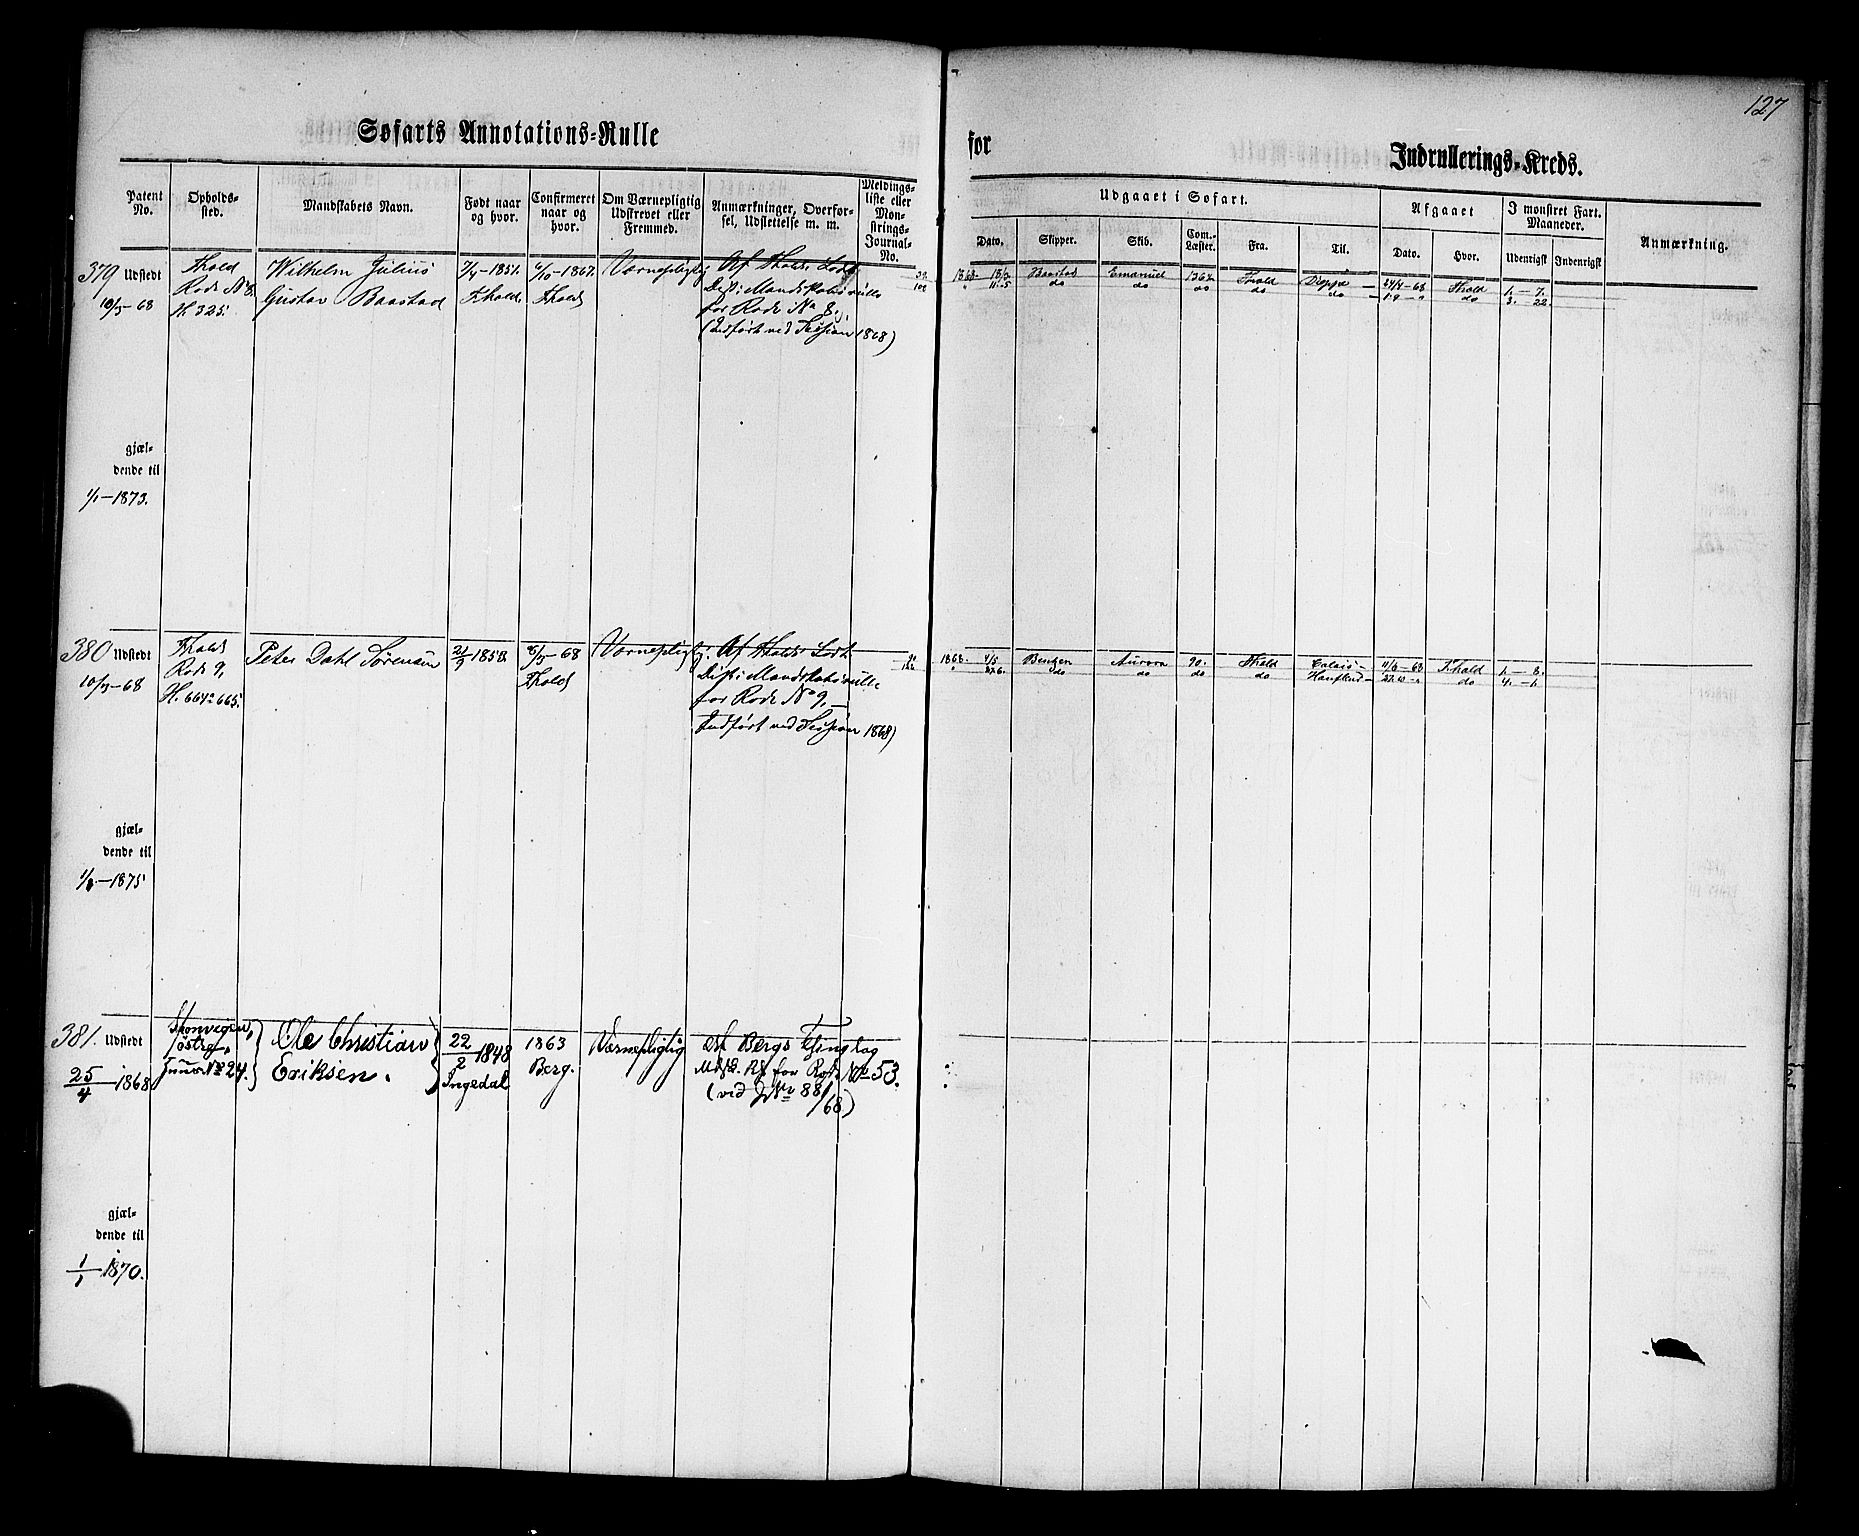 127
Søfarts Annotations-Rulle
for
Indrullerings-Kreds.
Patent No.
Opholds-sted.
Mandskabets Navn.
Født naar og hvor.
Confirmeret naar og hvor.
Om Værnepligtig Udskrevet eller Fremmed.
Anmærkninger, Overfør-sel, Udslettelse m. m.
Meldings-liste eller Møn-strings-Journal-No.
Udgaaet i Søfart.
Dato.
Skipper.
Skib.
Com.-Læster.
Fra.
Til.
Afgaaet
Dato.
Hvor.
I mønstret Fart. Maaneder.
Udenrigst
Indenrigst
Anmærkning.
379 Udstedt
10/3-68
Fhald
Rode No 8.
H 325.
Wilhelm Julius
Gustav Baastad
7/4-1851.
Fhald.
6/10-1867.
Fhald
Værnepligtig
Af Fhalds Lodt.
Dist: Mandskabsrulle
for Rode No 8.
(Indført ved Session 1868)
1868 Baastad Emanuel 136½ Fhald Dieppe 24/4-68 Fhald 1.-7.
do do do do do 3. 22
gjæl-
dende til
1/1-1873.
380 Udstedt
10/3-68
Fhald
Rode 9,
H. 664-665.
Peter Dahl Sørensen
21/9 1850.
8/3-68
Fhald
Værnepligtig.
Af Fhalds Lodt.
Dist: Mandskabsrulle
for Rode No 9,-
Indført ved Session 1868)
1868. 4/5 Bentzen Aurora 90. Fhald Calais 11/6-68 Fhald 1.-8.
22.6. do do do do do 4.-1.
gjæl-
dende til
-1875
381. Udstedt
25/4 1868
østre
No 24.
Ole Christian
Eriksen.
22/2 1848
Ingedal
1863
Berg.
Værnepligtig
Af Bergs Thinglag
Mdsk. Rl for Rode No 53.
(vid J No 881/68)
gjæl-
dende til
1/1 1870.